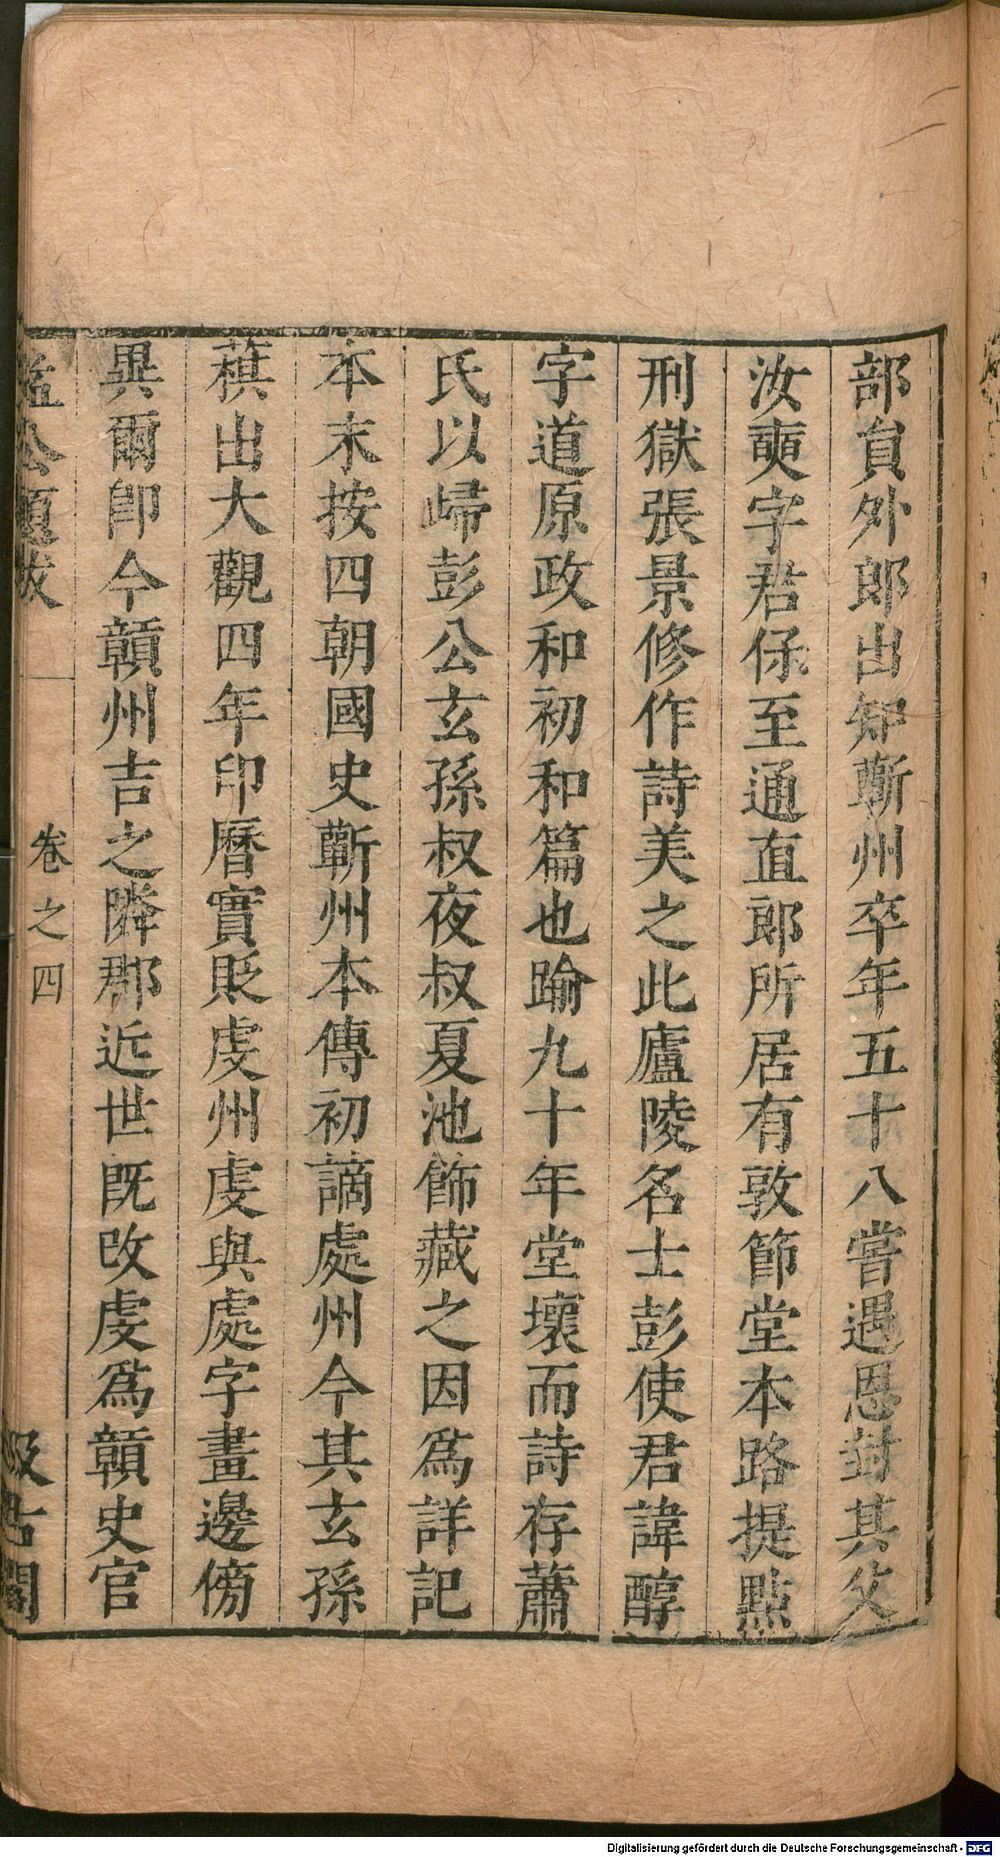 部員外郎出知蘄州卒年五十八嘗遇恩封其父
汝奭字君保至通直郎所居有敦節堂本路提點
刑獄張景修作詩美之此廬陵名士彭使君諱醇
字道原政和初和篇也踰九十年堂壞而詩存蕭
氏以歸彭公玄孫叔夜叔夏池飾藏之因爲詳記
本末按四朝國史蘄州本傳初謫處州今其玄孫
蘋出大觀四年印曆實貶虔州虔與處字畫邊傍
異爾卽今贛州吉之隣郡近世旣改虔爲贛史官
益公題跋 卷之四 汲古閣
Digitalisierung gefördert durch die Deutsche Forschungsgemeinschaft - DFG